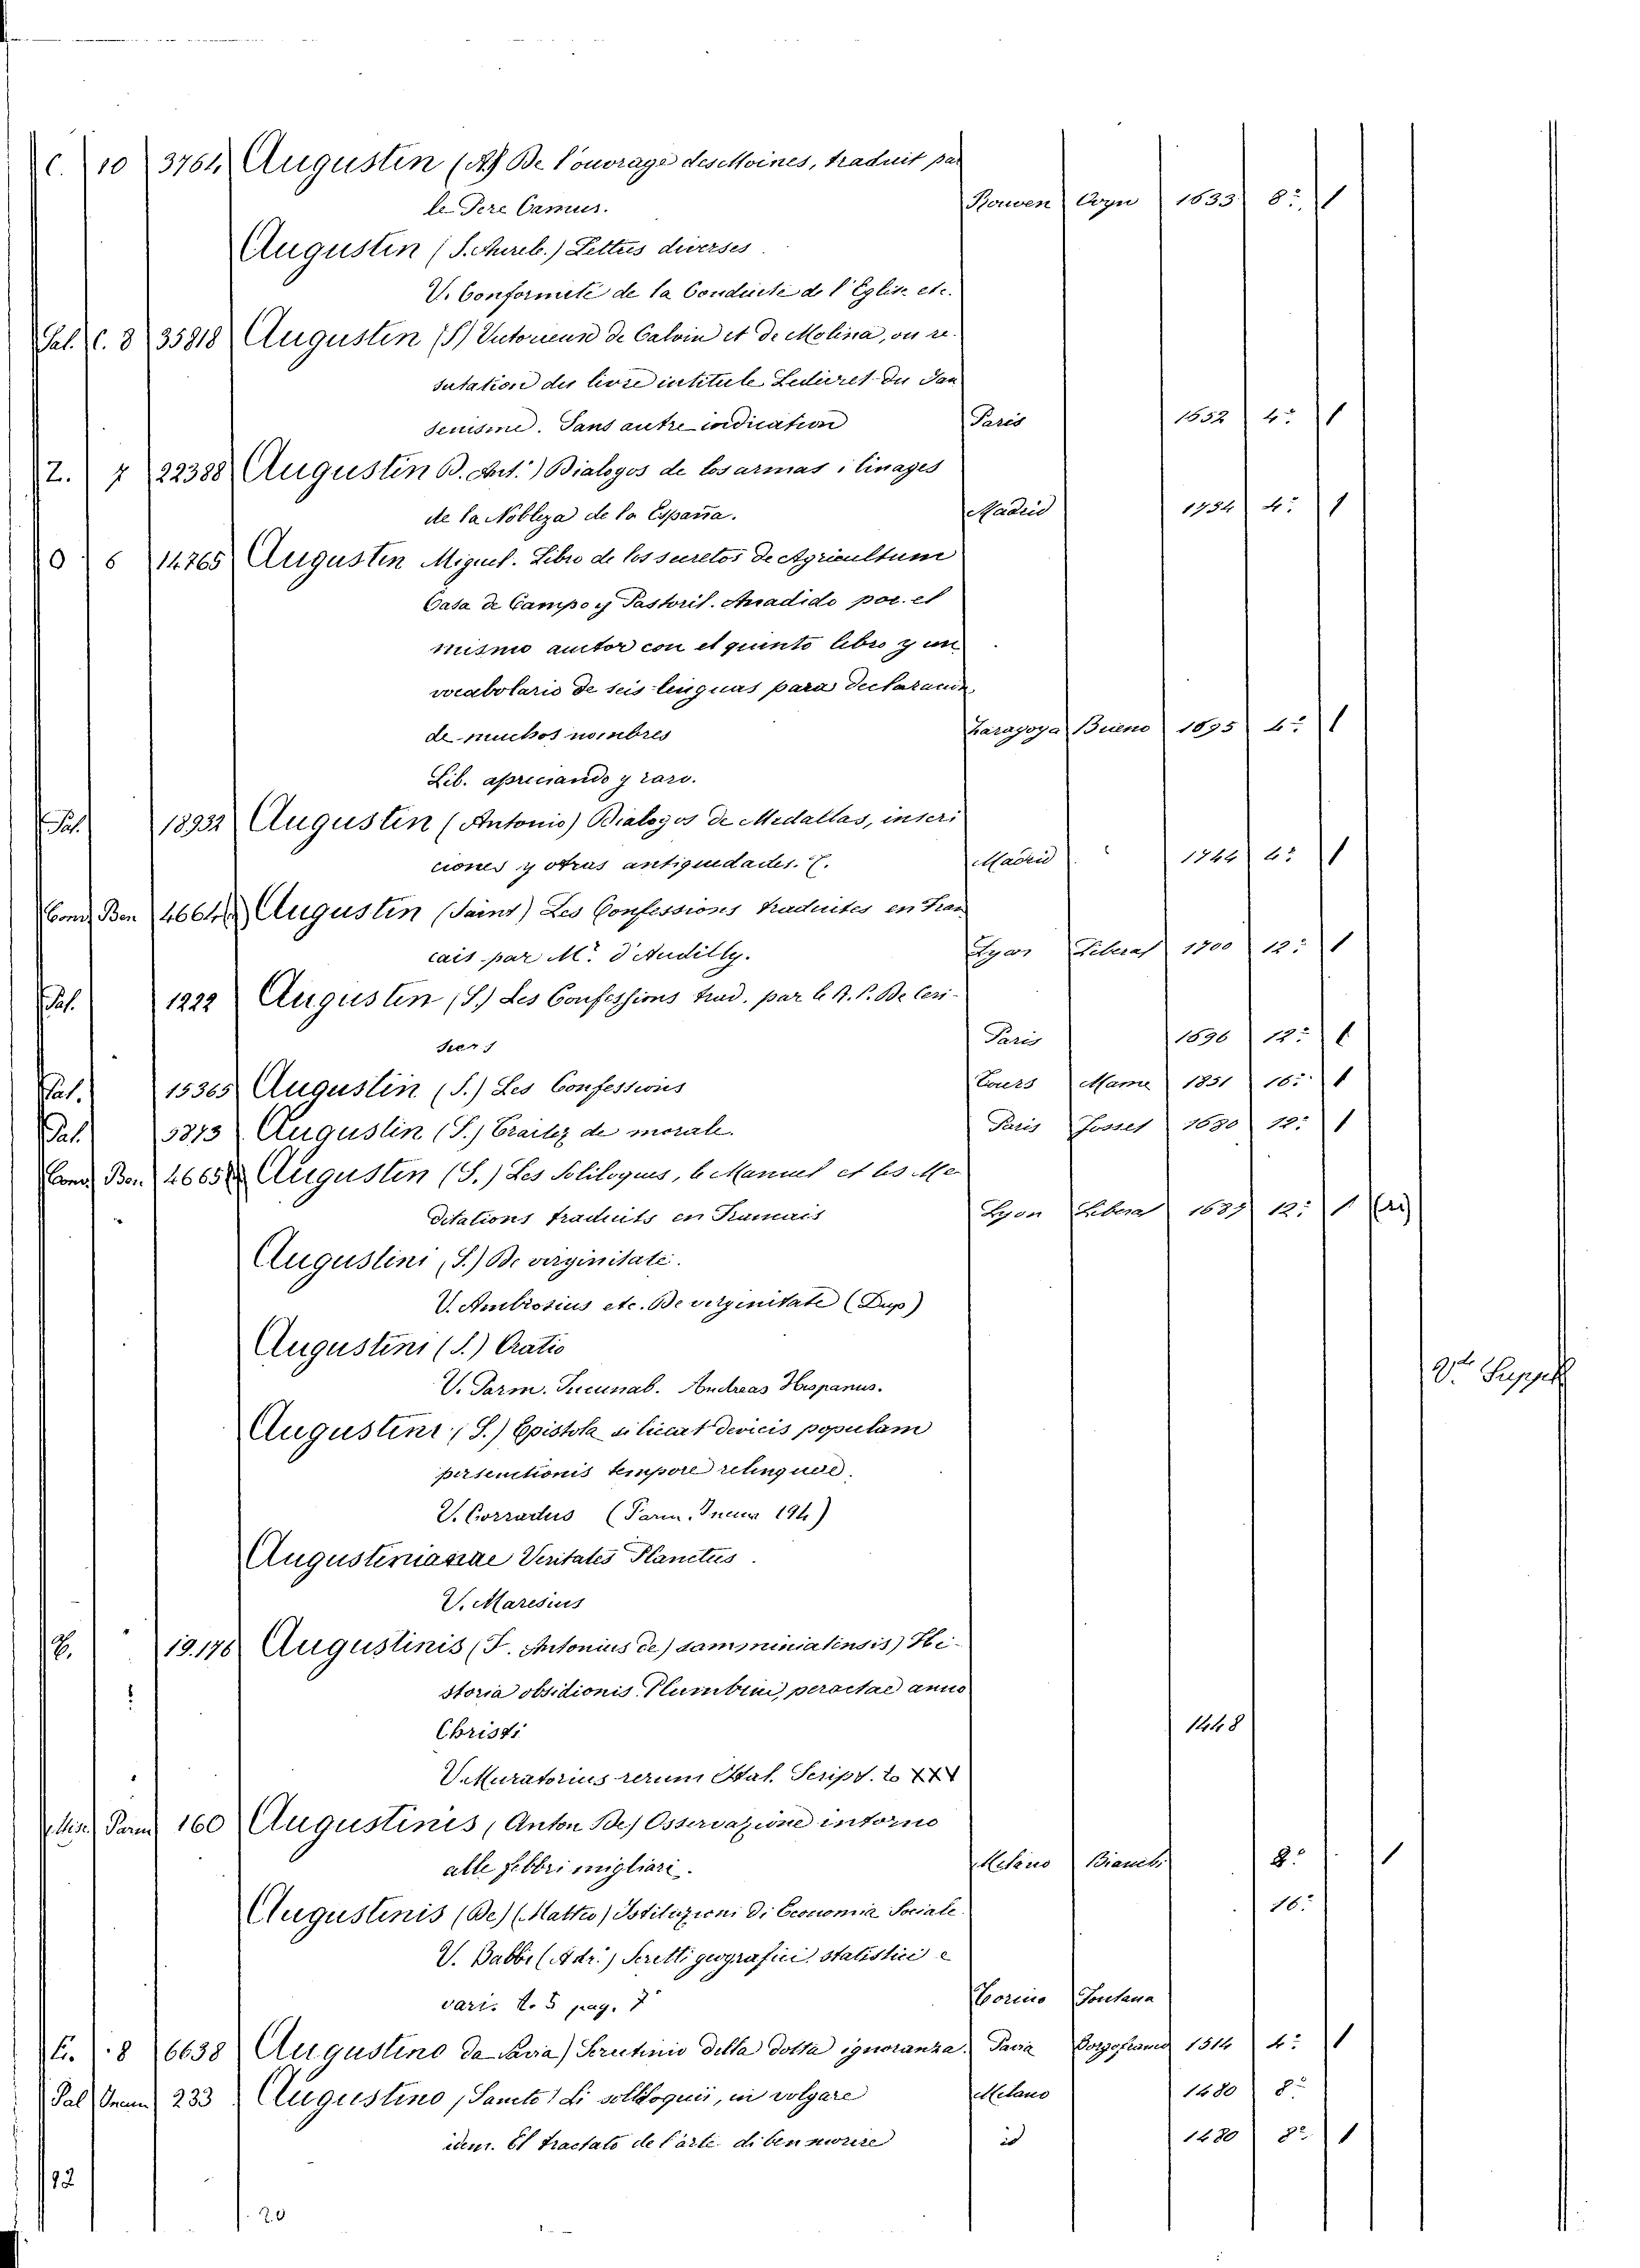 C. 10 3764 Augustin (S.) De l'ouvrage des Moines, traduit par
le Pere Camus. Rouen 1633 8.° 1
Augustin (S. Aurel.) Lettres diverses.
V. Conformité de la Conduite de l'Eglise etc.
Pal. C. 8 35818 Augustin (S) Victorieux de Calvin et de Molina, ou re-
futation du livre intitulé Le secret du Jan
senisme. Sans autre indication Paris 1652 4.° 1
Z. 7 22388 Augustin D. Ant.) Dialogos de las armas i linages
de la Nobleza de la España. Madrid 1734 4.° 1
O 6 14765 Augustin Miguel. Libro de los secretos de Agricultura
Casa de Campo y Pastoril. Anadido por el
mismo autor con el quinto libro y un
vocabolario de seis lenguas para declaracion
de muchos nombres Zaragoza Bueno 1695 4.° 1
Lib. apreciando y raro.
Pal. 18932 Augustin (Antonio) Dialogos de Medallas, inscri
ciones y otras antiguedades. Madrid 1744 4.° 1
Cons. Ben 4664 Augustin (Saint) Les Confessions traduites en Fran
cais par M.r d'Andilly. Lyon Liberal 1700 12.° 1
Pal. 1222 Augustin (S.) Les Confessions trad. par le R. P. De Ceri-
sier Paris 1696 12.° 1
Pal. 15365 Augustin (S.) Les Confessions Tours Mame 1851 16.° 1
Pal. 5873 Augustin (S.) Traitez de morale. Paris Josset 1680 12.° 1
Cons. Ben. 4665 Augustin (S.) Les Soliloques, le Manuel et les Me-
ditations traduits en Francais Lyon Liberal 1687 12.° 1
Augustini (S.) De virginitate.
V. Ambrosius etc. De virginitate (Dup)
Augustini (S.) Oratio
V. Parm. Incunab. Andreas Hispanus. V.de Suppel
Augustini (S.) Epistola si liceat devicis populam
persecutionis tempore relinquere.
V. Corradus (Parm. Incun 194)
Augustinianae Veritates Planctus.
V. Maresius
19.176 Augustinis (F. Antonius de) samminiatensis) Hi-
storia obsidionis Plumbini, peractae anno
Christi 1448
V. Muratorius rerum Ital. Script. to XXV
Misc. Parm 160 Augustinis (Anton De) Osservazione intorno
alle febbri migliari. Milano Bianchi 8.° 1
Augustinis (De) (Matteo) Istituzioni di Economia Sociale. 16.°
V. Balbi (Adr.) Scritti geografici, statistici e
vari. t. 5 pag. 7 Torino Fontana
8 6638 Augustino da Pavia) Scrutinio della dotta ignoranza. Pavia Borgofranco 1514 4.° 1
Pal Incun 233 Augustino (Sancto) Li solliloquii, in volgare Milano 1480 8.°
idem. El tractato de l'arte di ben morire id 1480 8.° 1
92
20